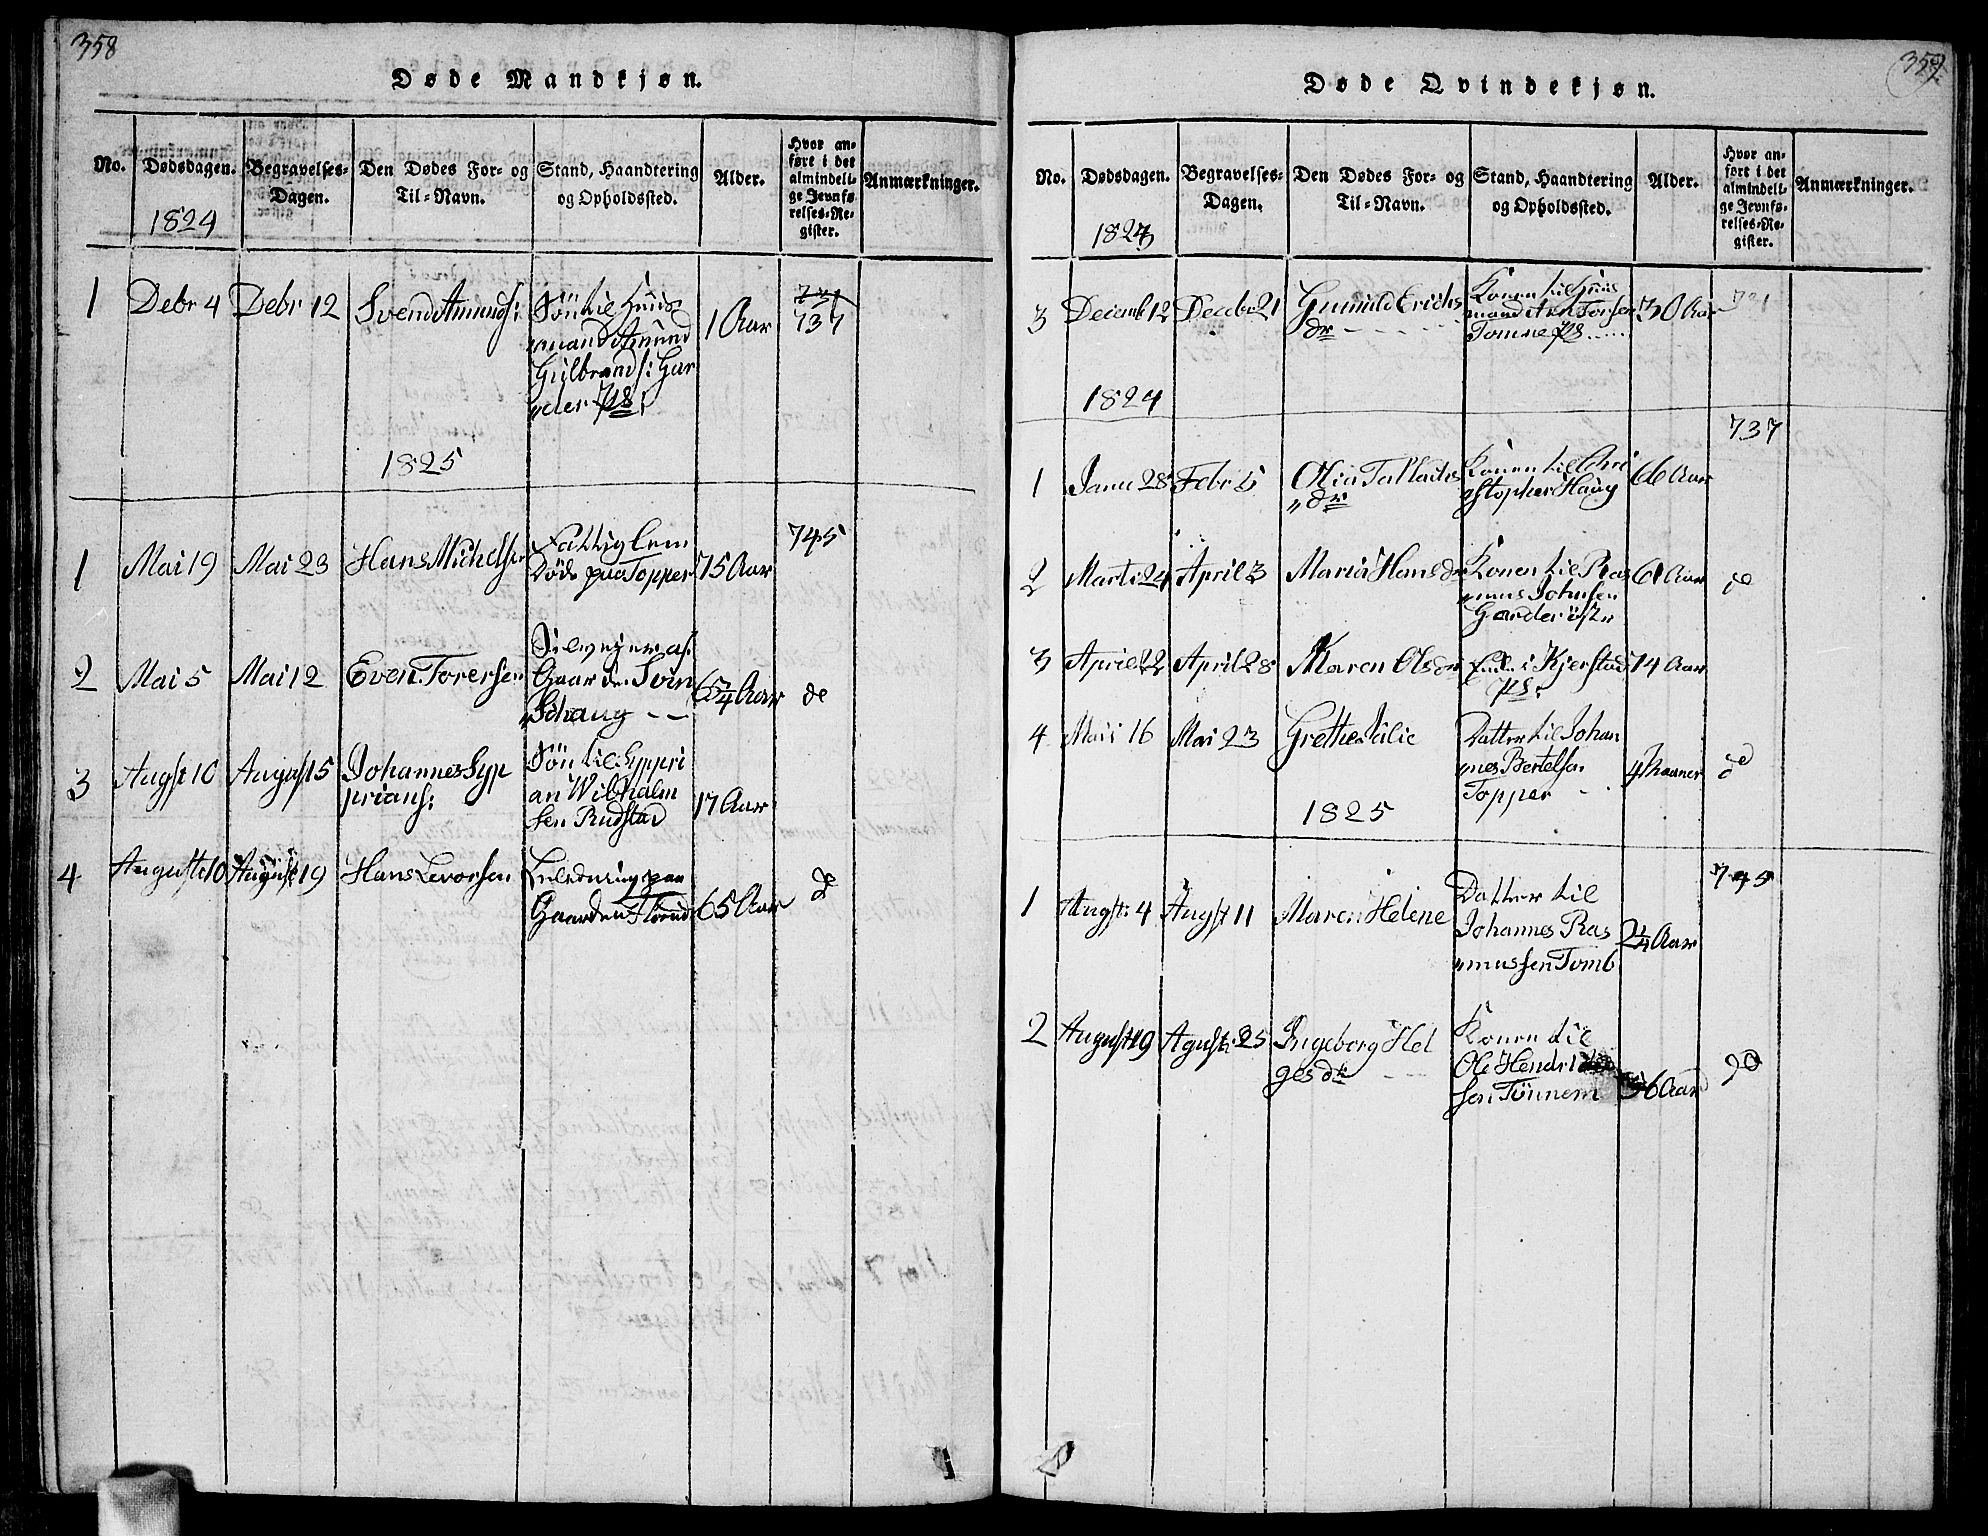 358
Døde Mandkjøn.
No.
Dødsdagen.
Begravelses-
Dagen.
Den Dødes For- og
Til-Navn.
Stand, Haandtering
og Opholdssted.
Alder.
Hvor an-
ført i det
almindeli-
ge Jevnfø-
relses-Re-
gister.
Anmærkninger.
1824
1
Debr 4
Debr 12
Svend Amunds:
Sön til Huus
mand Amund
Gulbrands: Gar
der
1 Aar
731
737
1825
1
Mai 19
Mai 23
Hans Michelsen
Fattiglem
Döde paa Topper
75 Aar
745
2
Mai 5
Mai 12
Even Torersen
Gaarden Svin
Schaug
de
3
Augst 10
August 15
Johannes Syp
prians:
Sön til Syppri
an Wilhalm
sen Rudstad
17 Aar
4
August 10
August 19
Hans Levorsen
Gaarden
65 Aar
d
359
Døde Qvindekjøn.
No.
Dødsdagen.
Begravelses-
Dagen.
Den Dødes For- og
Til-Navn.
Stand, Haandtering
og Opholdssted.
Alder.
Hvor an-
ført i det
almindeli-
ge Jevnfø-
relses-Re-
gister.
Anmærkninger.
1823
3
Decemb 12
Decebr 21
Gunnild Erichs
dr
Konen til Huus
mand
Tomne
30 Aar
731
1824
737
1
Janu 28
Febr 5
Konen til Chri
stopher Haug
66 Aar
2
Marti 24
April 3
Maria Hansdr
Konen til Ras
mus Johnsen
Garder
61 Aar
de
3
April 22
April 28
Maren Olsdr
i Kjerstad
74 Aar
4
Maii 16
Mai 23
Grethe Julie
Datter til Johan
nes Bertelsen
Topper
4 Maaner
de
1825
745
1
Augst: 4
Augst 11
Maren Helene
Datter til
Johannes Ras
mussen Tomb
2 1/4 Aar
2
August 19
Agust: 25
Ingeborg Hel
gesdtr
Konen til
Ole Hendrich
sen Tünnem
56 Aar
do